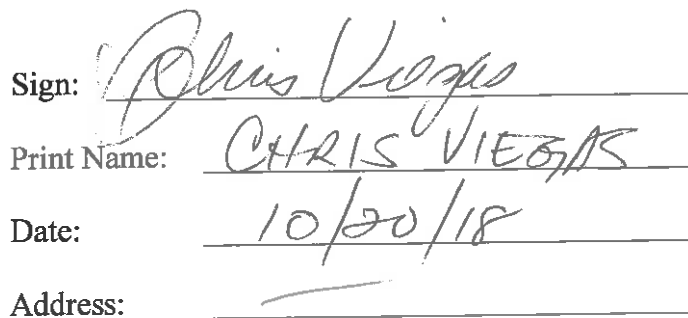 Sign: Chris Viegas
Print Name: CHRIS VIEGAS
Date: 10/20/18
Address: